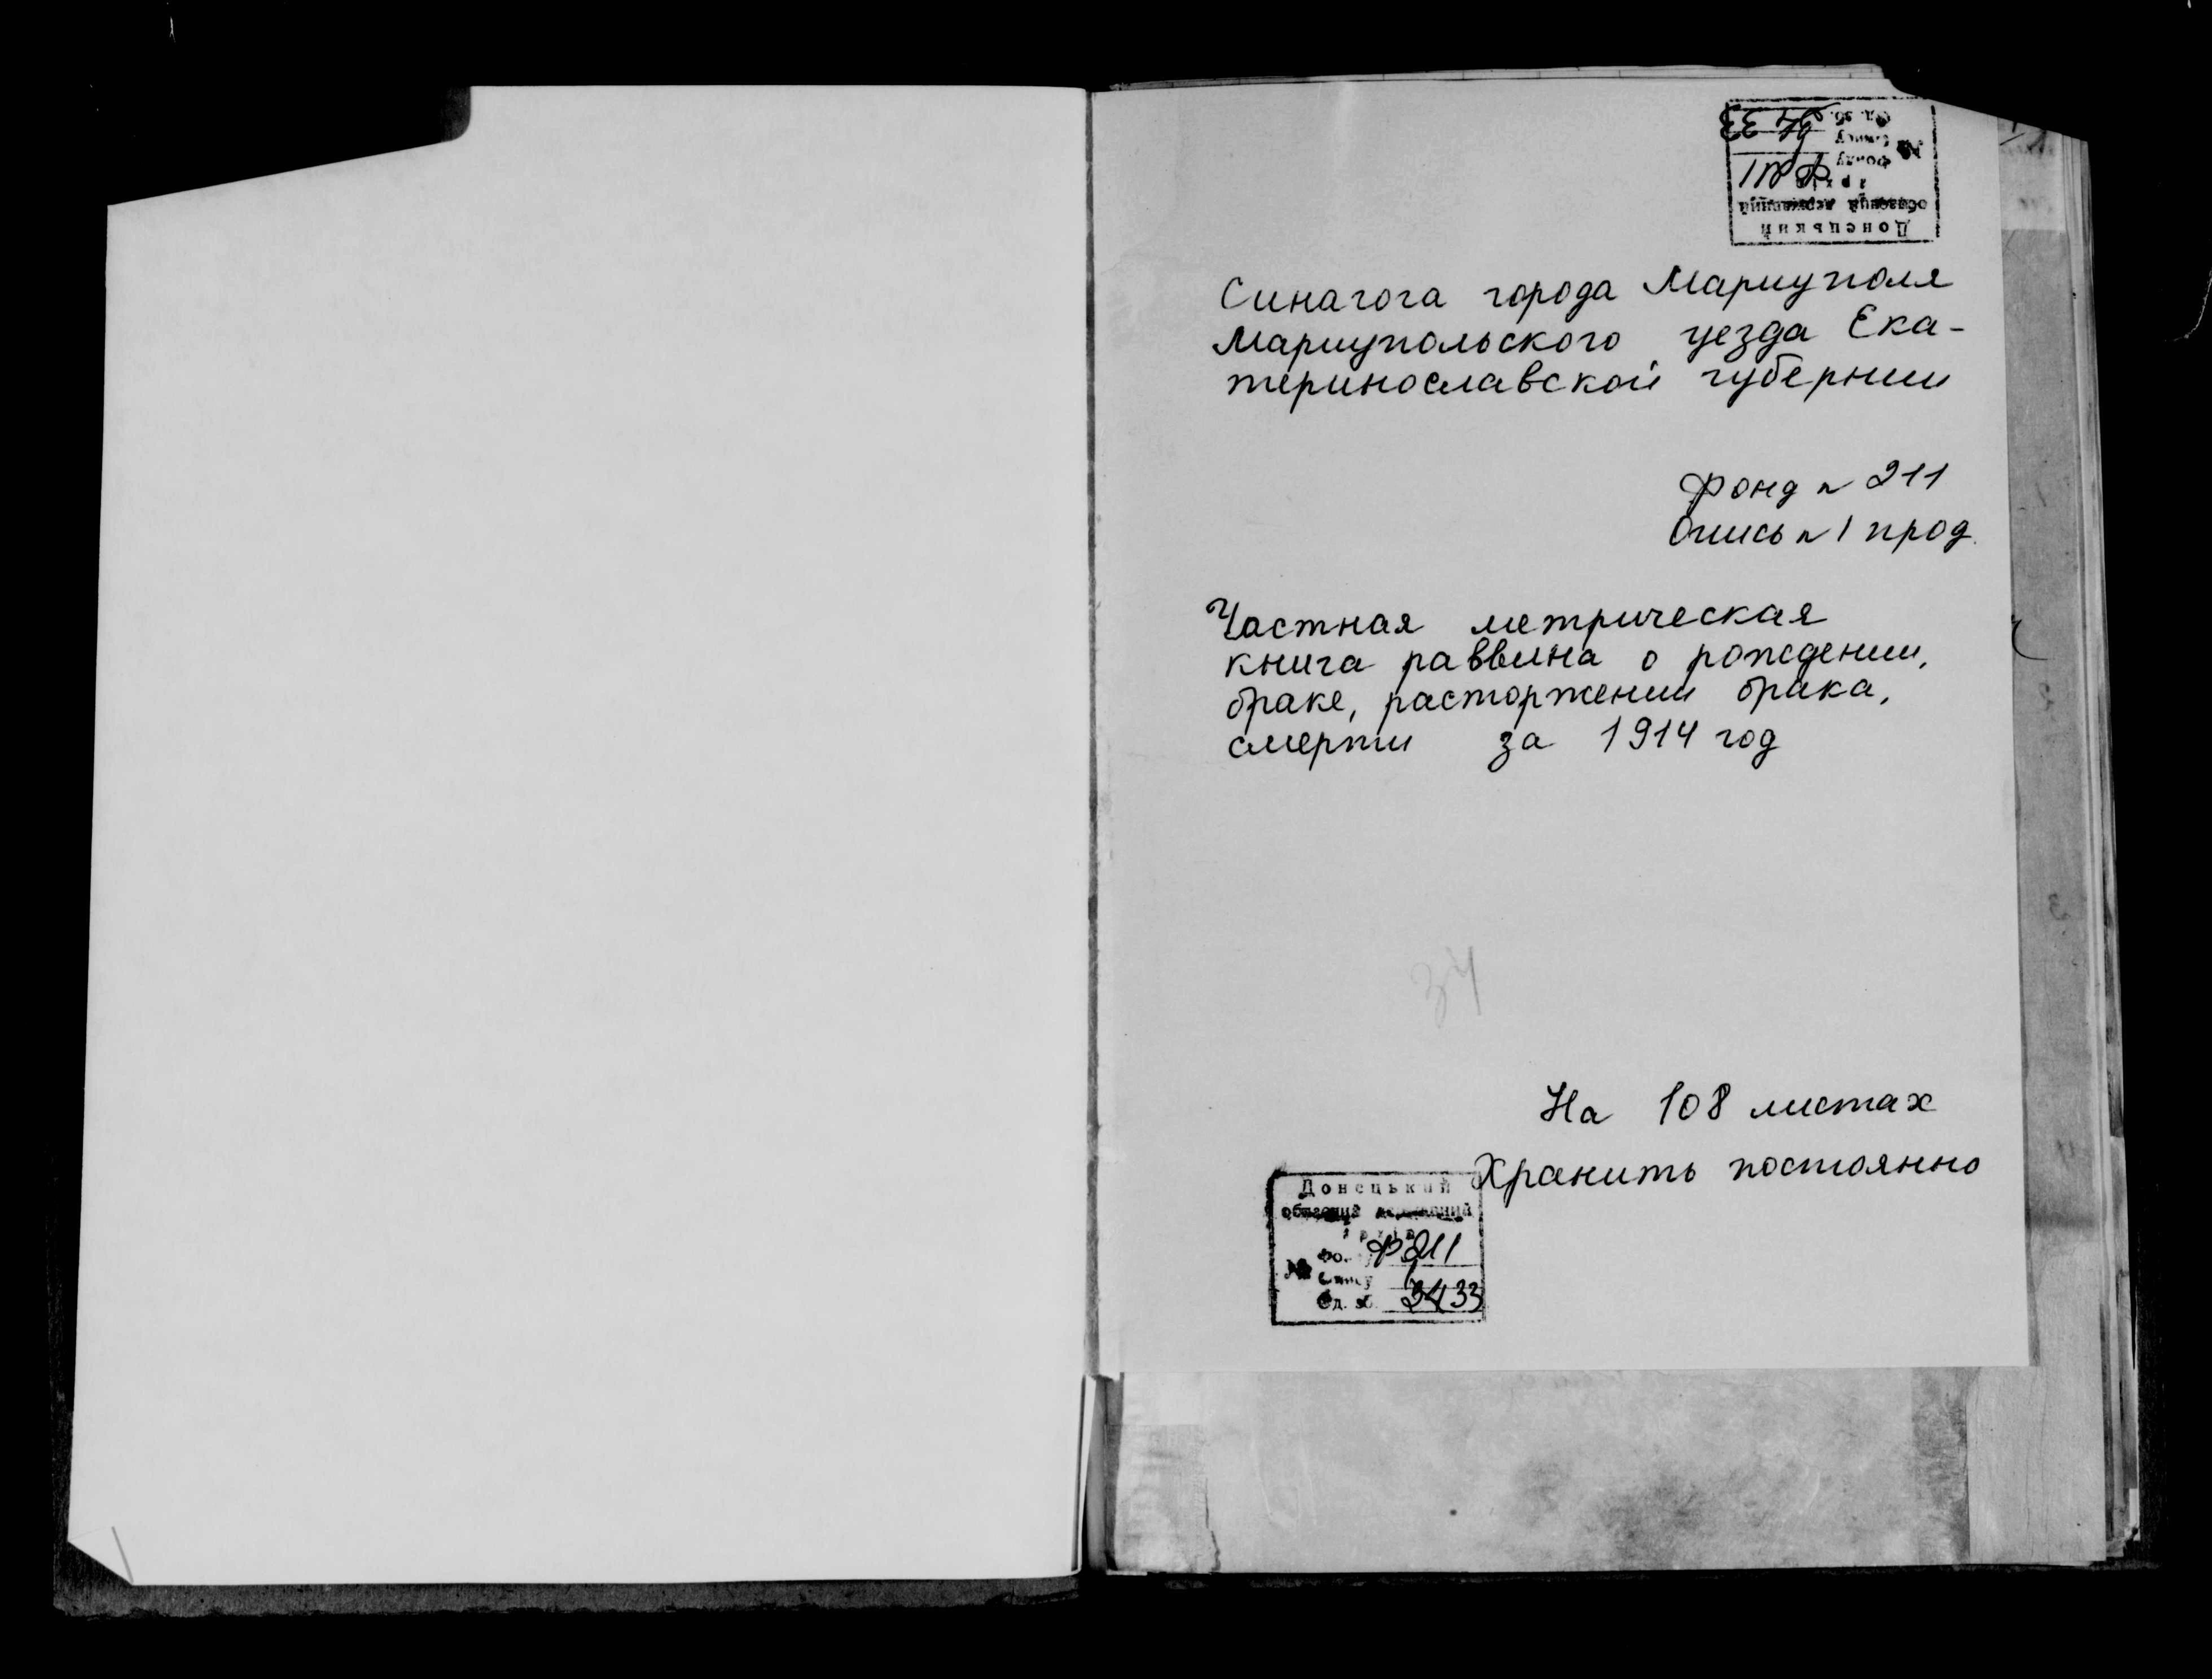 Синагога города Мариуполя
Мариупольского уезда Ека-
теринославской губернии
Фонд № 211
Опись № 1 прод.
Частная метрическая
книга раввина о рождении,
браке, расторжении брака,
смерти за 1914 год
34
На 108 листах
Хранить постоянно
Донецький
обласний державний
архів
№ фонду Р211
Опису 1
Од. зб. 3433